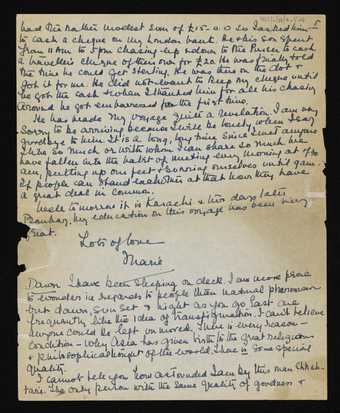 had the rather modest sum of £15-0-0 so I asked him
to cash a cheque on my London bank. He & his son spent
from 11 am to 5 pm chasing up & down to the Purser to cash
a traveller's cheque of their own for £20. He was finally told
the time he could get sterling. He was there on the dot &
got it for me. He did not want to keep my cheque until
he got the cash & when I thanked him for all his chasing
around he got embarrassed for the first time.
He has made my voyage quite a revelation. I am very
sorry to be arriving because I will be lonely when I say
goodbye to him. It is a long, long time since I met anyone
I like so much or with whom I can share so much. We
have fallen into the habit of meeting every morning at
am, putting up our feet & sunning ourselves until 9 am -
If people can stand each other at that hour they have
a great deal in common.
Well tomorrow it is Karachi & two days later
Bombay, my education on this voyage has been very
great.
Lots of love
Marie
Dawn I have been sleeping on deck. I am more prone
to wonder in regards to people than natural phenomenon
but dawn, sunset & night as you go East are
frequently like the idea of transformation. I can't believe
anyone could be left unmoved. There is every reason -
condition - why Asia has given birth to the great religions
& philosophical thought of the world. There is some special
quality.
I cannot tell you how astounded I am by this man
The only person with the same quality of goodness &